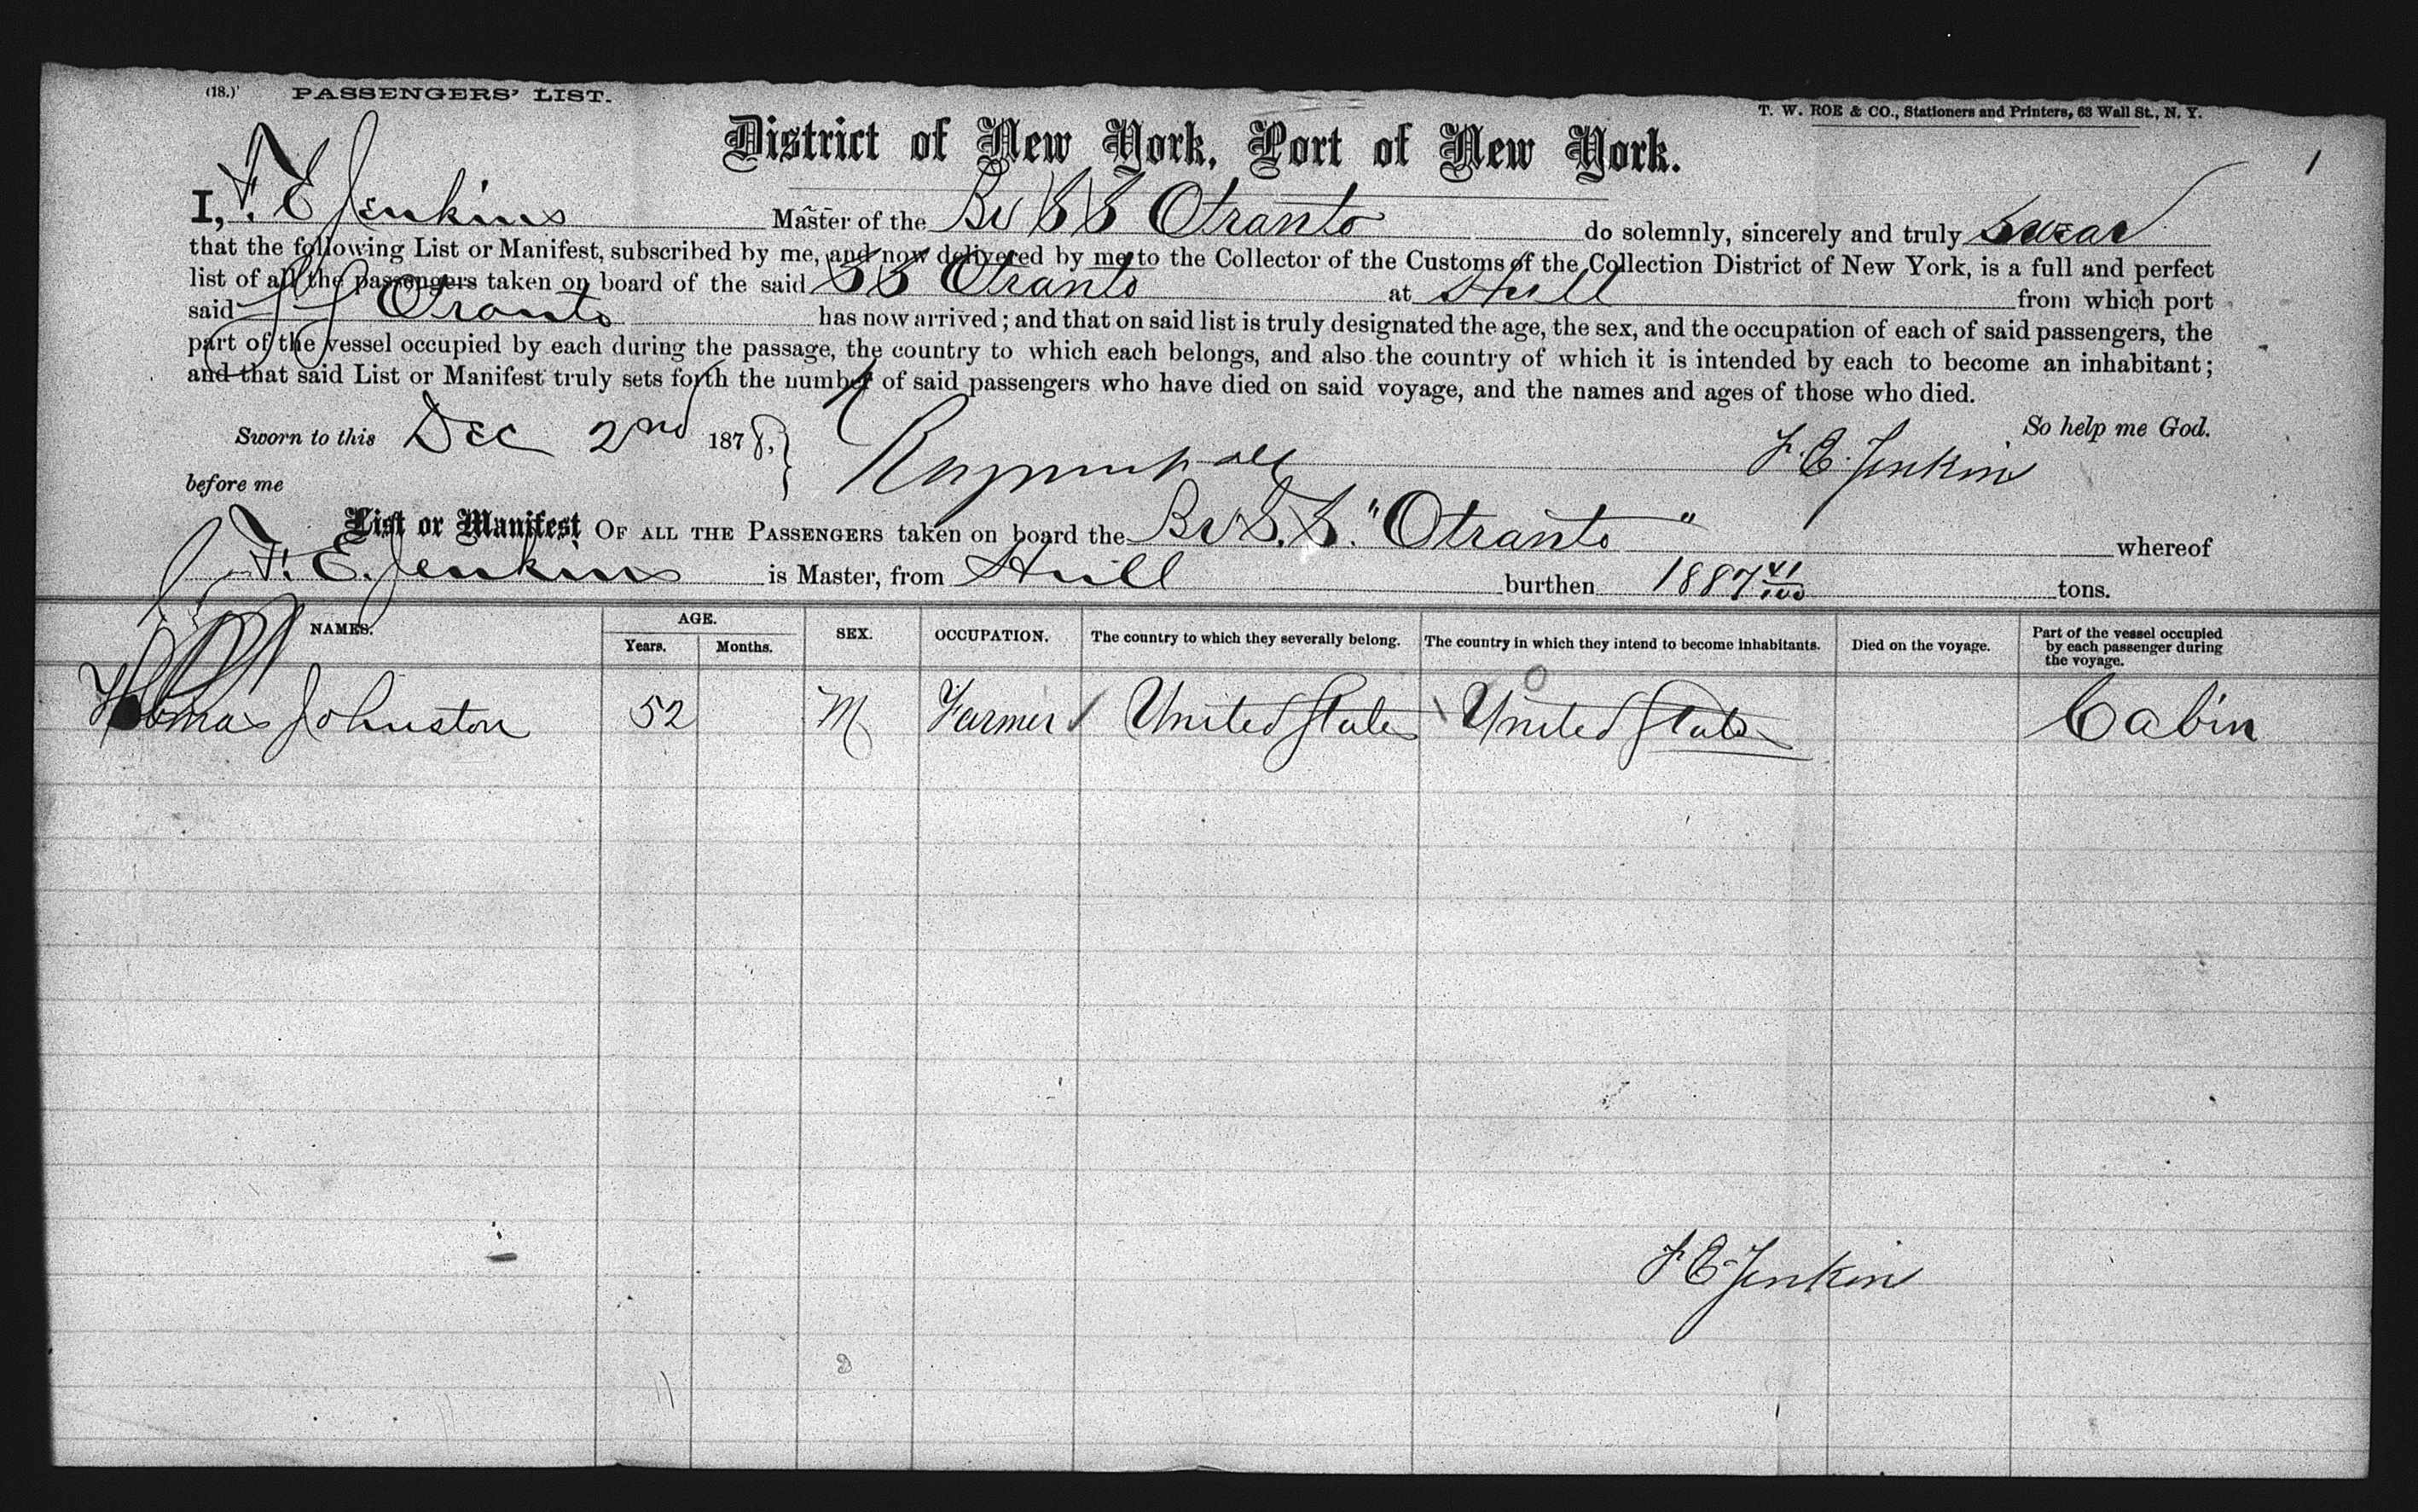 (18.) PASSENGERS' LIST.
T. W. ROE & CO., Stationers and Printers, 63 Wall St., N. Y.
District of New York, Port of New York.
1
I, F. E Jenkins Master of the Br S S Otranto do solemnly, sincerely and truly swear
that the following List or Manifest, subscribed by me, and now delivered by me to the Collector of the Customs of the Collection District of New York, is a full and perfect
list of all the passengers taken on board of the said S S Otranto at Hull from which port
said S S Otranto has now arrived; and that on said list is truly designated the age, the sex, and the occupation of each of said passengers, the
part of the vessel occupied by each during the passage, the country to which each belongs, and also the country of which it is intended by each to become an inhabitant;
and that said List or Manifest truly sets forth the number of said passengers who have died on said voyage, and the names and ages of those who died.
Sworn to this Dec 2nd 1878, So help me God.
F. E. Jenkins
before me
List or Manifest OF ALL THE PASSENGERS taken on board the Br S. S. "Otranto" whereof
F. E. Jenkins is Master, from Hull burthen 1887 41/100 tons.
NAMES. AGE. Years. Months. SEX. OCCUPATION. The country to which they severally belong. The country in which they intend to become inhabitants. Died on the voyage. Part of the vessel occupied by each passenger during the voyage.
Thomas Johnston 52 M Farmer United States United States Cabin
F E Jenkins